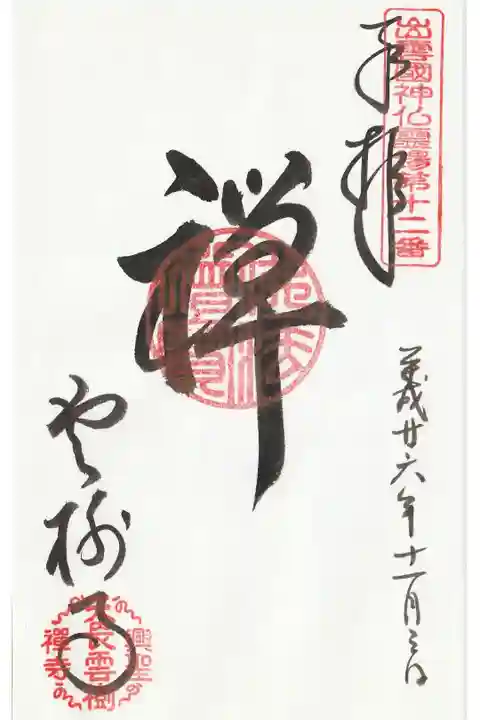 出雲國神仏霊場第十二番
奉拝
平成廿六年十一月三日
禅
雲樹寺
興聖
天長雲樹
禪寺